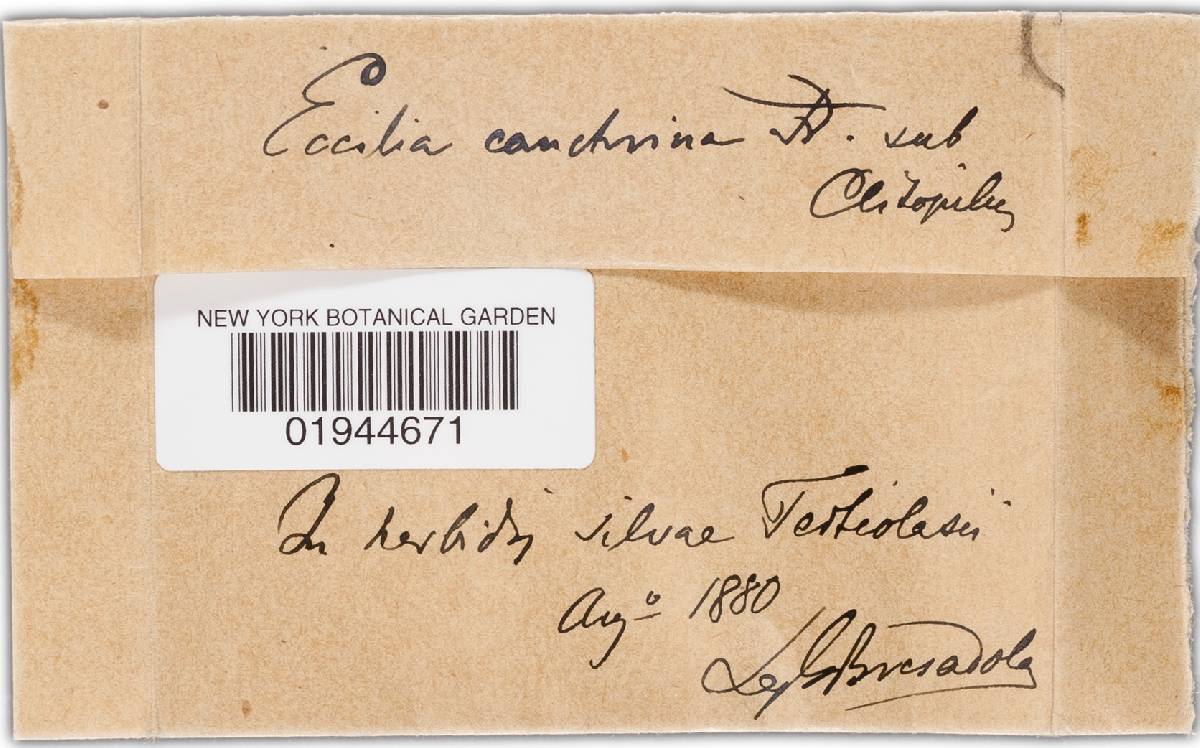 Eccilia cancrina Fr. sub
Clitopilus
NEW YORK BOTANICAL GARDEN
01944671
In herbidis silvae
Augo 1880
Leg G Bresadola